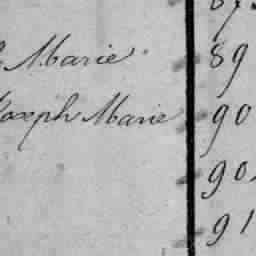 Marie 89
Joseph Marie 90
90
91